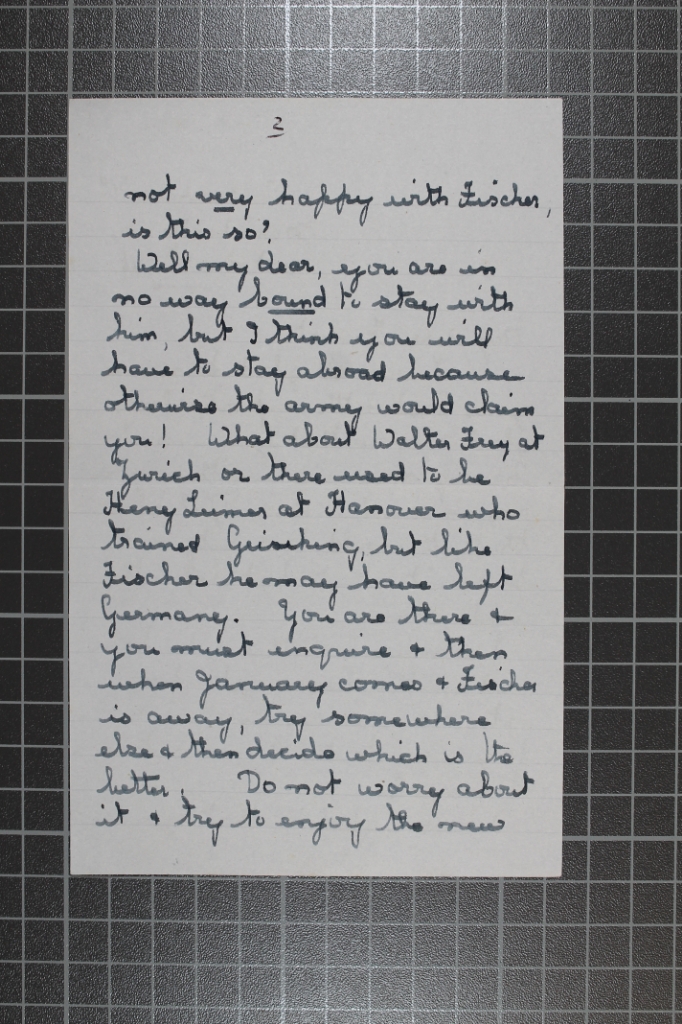 2
not very happy with Fischer,
is this so?
Well my dear, you are in
no way bound to stay with
him, but I think you will
have to stay abroad because
otherwise the army would claim
you! What about Walter Frey at
Zurich or there used to be
Heny Leimer at Hanover who
trained Geiseking, but like
Fischer he may have left
Germany. You are there &
you must enquire & then
when January comes & Fischer
is away, try somewhere
else & then decide which is the
better. Do not worry about
it & try to enjoy the new